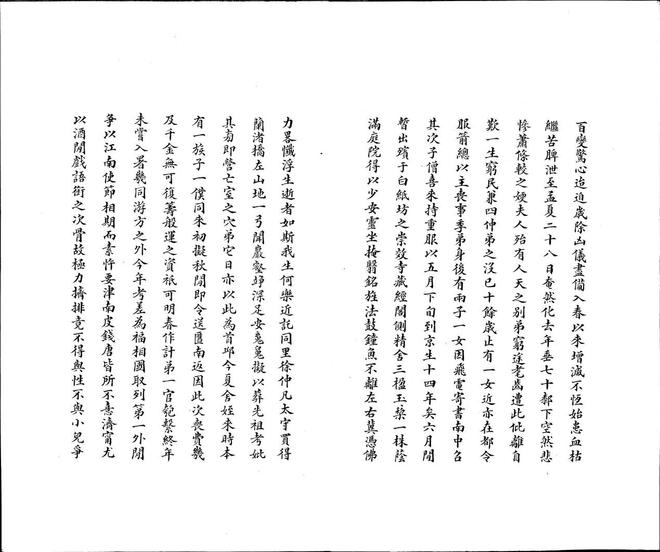 百變驚心迨迫歲除凶儀盡備入春以來增減不恆始患血枯
繼苦脾泄至孟夏二十八日奄然化去年垂七十都下空然悲
慘蕭條較之嫂夫人殆有人天之別弟窮途老鰥遭此仳離自
歎一生窮民兼四仲弟之沒已十餘歲止有一女近亦在都令
服菅總以主喪事季弟身後有兩子一女因飛電寄書南中召
其次子僧喜來持重服以五月下旬到京生十四年矣六月閒
暫出殯于白紙坊之崇效寺藏經閣側精舍三楹玉蘂一株蔭
滿庭院得以少安靈坐掩翳銘旌法鼓鐘魚不離左右冀憑佛
力畧懺浮生逝者如斯我生何樂近託同里徐仲凡太守買得
蘭渚橋左山地一弓開巖豁靜深足安鬼窟擬以葬先祖考妣
其旁即營亡室之穴弟它日亦以此為首邱今夏舍姪來時本
有一族子一僕同來初擬秋閒即令送匶南返因此次喪費幾
及千金無可復籌般運之資祇可明春作計第一官匏繫終年
未嘗入署幾同游方之外今年考差為福相國取列第一外閒
爭以江南使節相期而素忤要津南皮錢唐皆所不憙濟甯尤
以酒閒戲語銜之次骨故極力擠排竟不得與性不與小兒爭